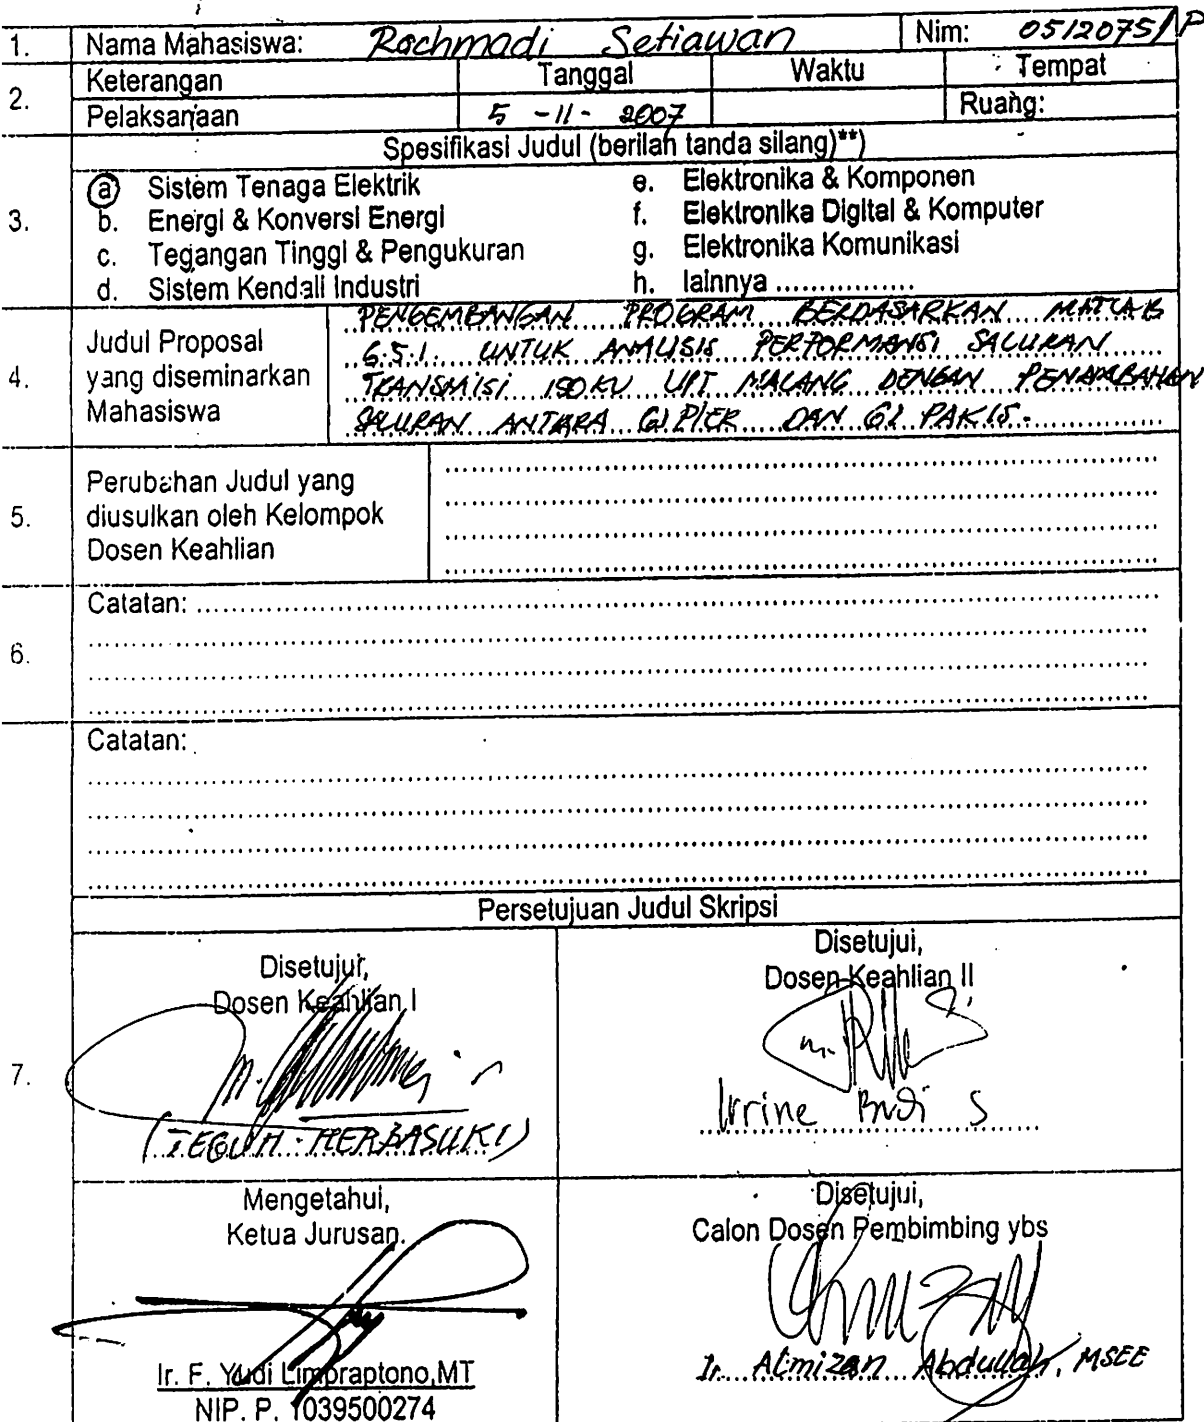 1. Nama Mahasiswa: Rochmadi Setiawan Nim: 0512075/P
2. Keterangan Tanggal Waktu Tempat
Pelaksanaan 5 -11- 2007 Ruang:
Spesifikasi Judul (berilah tanda silang)**)
3.
a Sistem Tenaga Elektrik
b. Energi & Konversi Energi
c. Tegangan Tinggi & Pengukuran
d. Sistem Kendali Industri
e. Elektronika & Komponen
f. Elektronika Digital & Komputer
g. Elektronika Komunikasi
h. lainnya ................
4. Judul Proposal
yang diseminarkan
Mahasiswa
PENGEMBANGAN PROGRAM BERDASARKAN MATLAB
6.5.1. UNTUK ANALISIS PERFORMANSI SALURAN
TRANSMISI 150 KV UPT MALANG DENGAN PENAMBAHAN
SALURAN ANTARA GI PIER DAN GI PAKIS.
5. Perubahan Judul yang
diusulkan oleh Kelompok
Dosen Keahlian
6. Catatan:
Catatan:
Persetujuan Judul Skripsi
7.
Disetujui,
Dosen Keahlian I
(TEGUH HERBASUKI)
Disetujui,
Dosen Keahlian II
Irrine Budi S
Mengetahui,
Ketua Jurusan.
Ir. F. Yudi Limpraptono,MT
NIP. P. 1039500274
Disetujui,
Calon Dosen Pembimbing ybs
Ir. Almizan Abdullah, MSEE